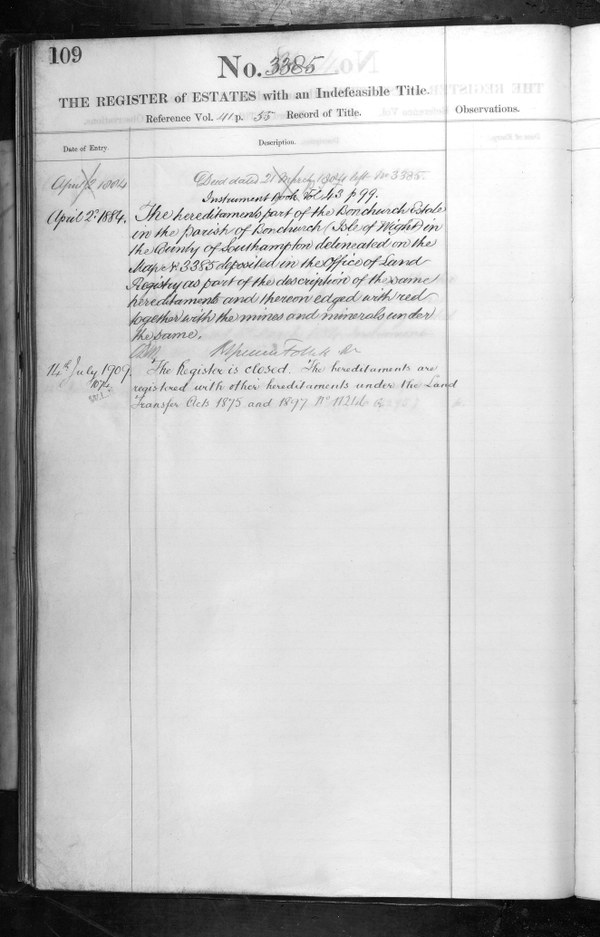 109
No. 3385
THE REGISTER of ESTATES with an Indefeasible Title.
Reference Vol. 41 p. 55 Record of Title.
Observations.
Date of Entry
Description.
April 2 1884
Deed dated 21 March 1884 left No 3385.
Instrument Book Vol. 43 p 99.
April 2d 1884.
The hereditaments part of the Bonchurch Estate
in the Parish of Bonchurch (Isle of Wight) in
the County of Southampton delineated on the
Map No 3385 deposited in the Office of Land
Registry as part of the description of the same
hereditaments and thereon edged with red
together with the mines and minerals under
the same.
14th July 1909.
The Register is closed. The hereditaments are
registered with other hereditaments under the Land
Transfer Acts 1875 and 1897 No